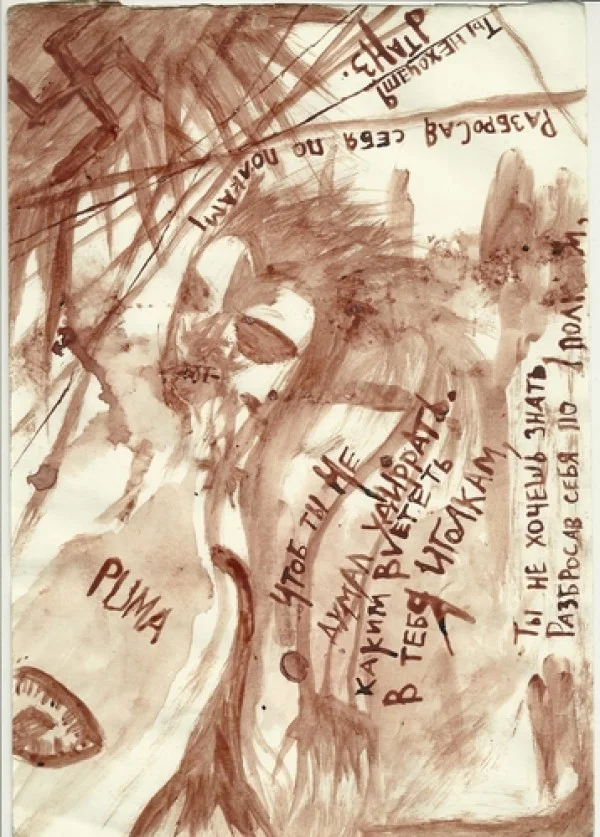 ТЫ НЕ ХОЧЕШЬ
РАЗБРОСАВ СЕБЯ ПО ПОЛКАМ,
РИМА
ЧТОБ ТЫ НЕ
ДУМАЛ
КАКИМ
В ТЕБЯ ИГОЛКАМ,
ТЫ НЕ ХОЧЕШЬ ЗНАТЬ
РАЗБРОСАВ СЕБЯ ПО